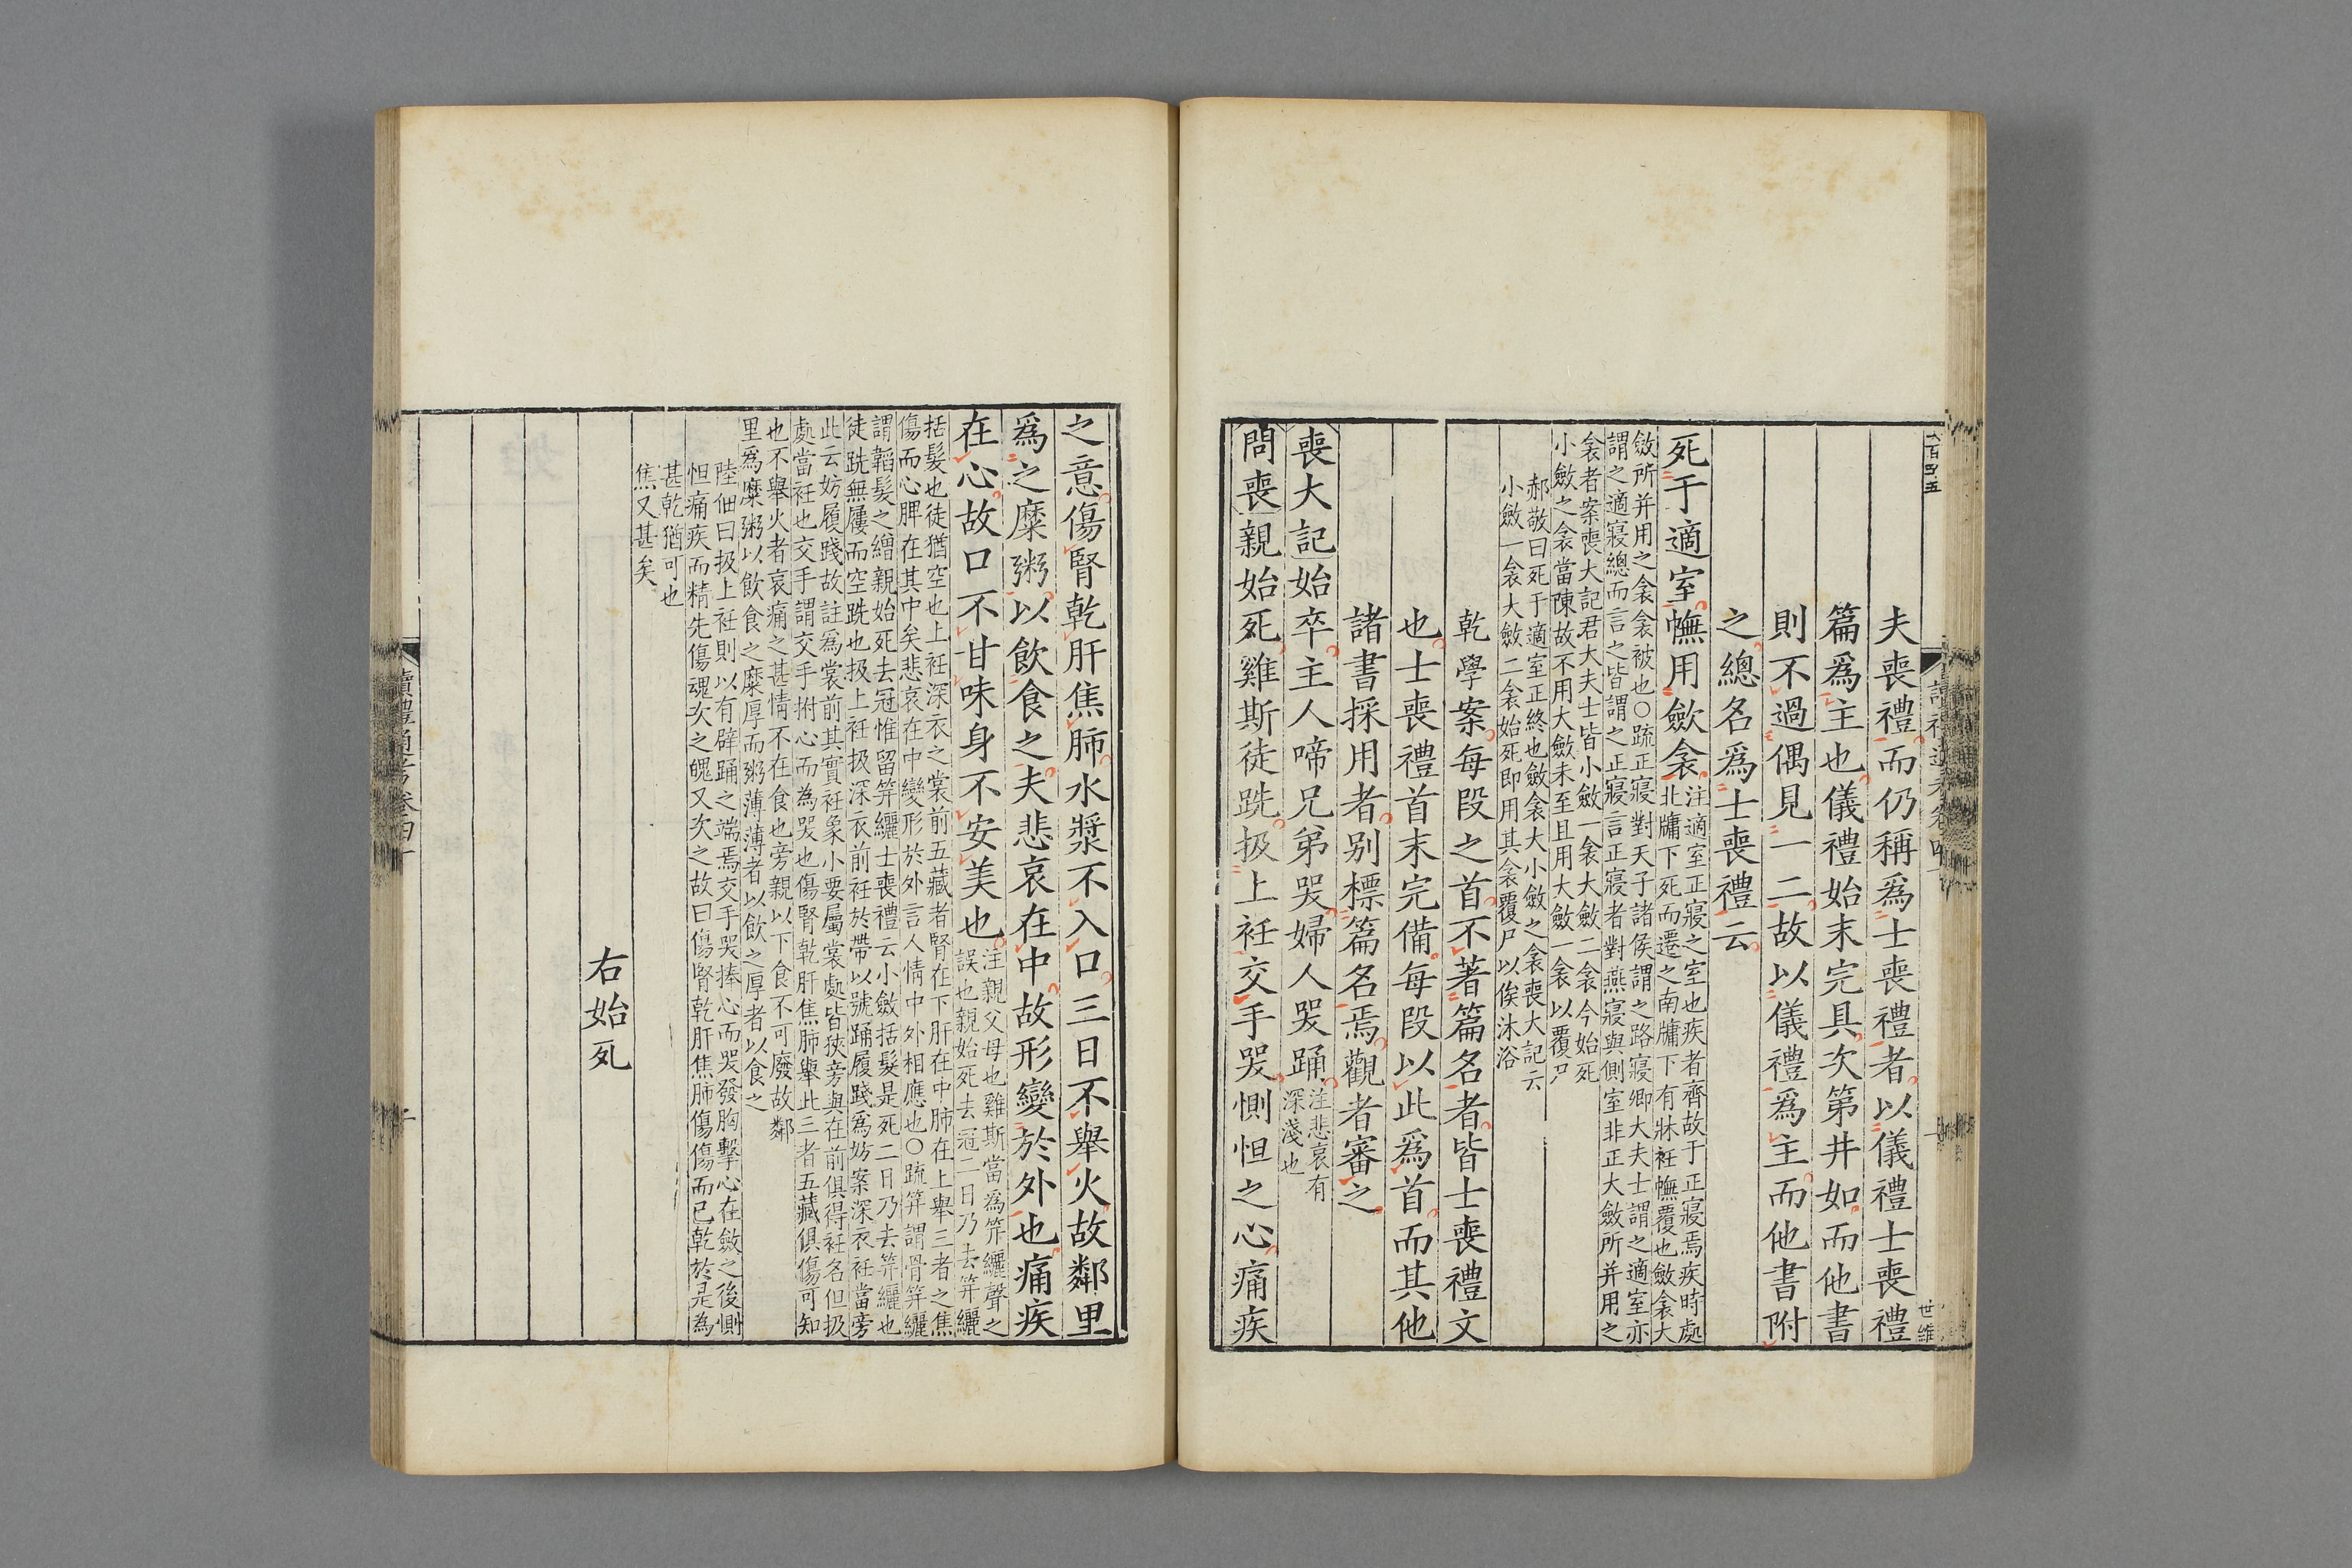 夫喪禮而仍稱爲士喪禮者以儀禮士喪禮
篇爲主也儀禮始末完具次第井如而他書
則不過偶見一二故以儀禮爲主而他書附
之總名爲士喪禮云
死于適室幠用斂衾
注適室正寢之室也疾者齊故于正寢焉疾時處
北牖下死而遷之南牖下有牀衽幠覆也斂衾大
斂所并用之衾衾被也○疏正寢對天子諸侯謂之路寢卿大夫士謂之適室亦
謂之適寢總而言之皆謂之正寢言正寢者對燕寢與側室非正大斂所并用之
衾者案喪大記君大夫士皆小斂一衾大斂二衾今始死
小斂之衾當陳故不用大斂未至且用大斂一衾以覆尸
郝敬曰死于適室正終也斂衾大小斂之衾喪大記云
小斂一衾大斂二衾始死即用其衾覆尸以俟沐浴
乾學案每段之首不著篇名者皆士喪禮文
也士喪禮首末完備每段以此爲首而其他
諸書採用者别標篇名焉觀者審之
喪大記始卒主人啼兄弟哭婦人哭踊
注悲哀有
深淺也
問喪親始死雞斯徒跣扱上衽交手哭惻怛之心痛疾
之意傷腎乾肝焦肺水漿不入口三日不舉火故鄰里
爲之糜粥以飲食之夫悲哀在中故形變於外也痛疾
在心故口不甘味身不安美也
注親父母也雞斯當爲笄纚聲之
誤也親始死去冠二日乃去笄纚
括髮也徒猶空也上衽深衣之裳前五藏者腎在下肝在中肺在上舉三者之焦
傷而心脾在其中矣悲哀在中變形於外言人情中外相應也○疏笄謂骨笄纚
謂韜髮之繒親始死去冠惟留笄纚士喪禮云小斂括髮是死二日乃去笄纚也
徒跣無屨而空跣也扱上衽扱深衣前衽於帶以號踊履踐爲妨案深衣衽當旁
此云妨履踐故註爲裳前其實衽象小要屬裳處皆狹旁與在前俱得衽名但扱
處當衽也交手謂交手拊心而為哭也傷腎乾肝焦肺舉此三者五藏俱傷可知
也不舉火者哀痛之甚情不在食也旁親以下食不可廢故鄰
里爲糜粥以飲食之糜厚而粥薄薄者以飲之厚者以食之
陸佃曰扱上衽則以有辟踊之端焉交手哭捧心而哭發胸擊心在斂之後惻
怛痛疾而精先傷魂次之魄又次之故曰傷腎乾肝焦肺傷傷而已乾於是為
甚乾猶可也
焦又甚矣
右始死